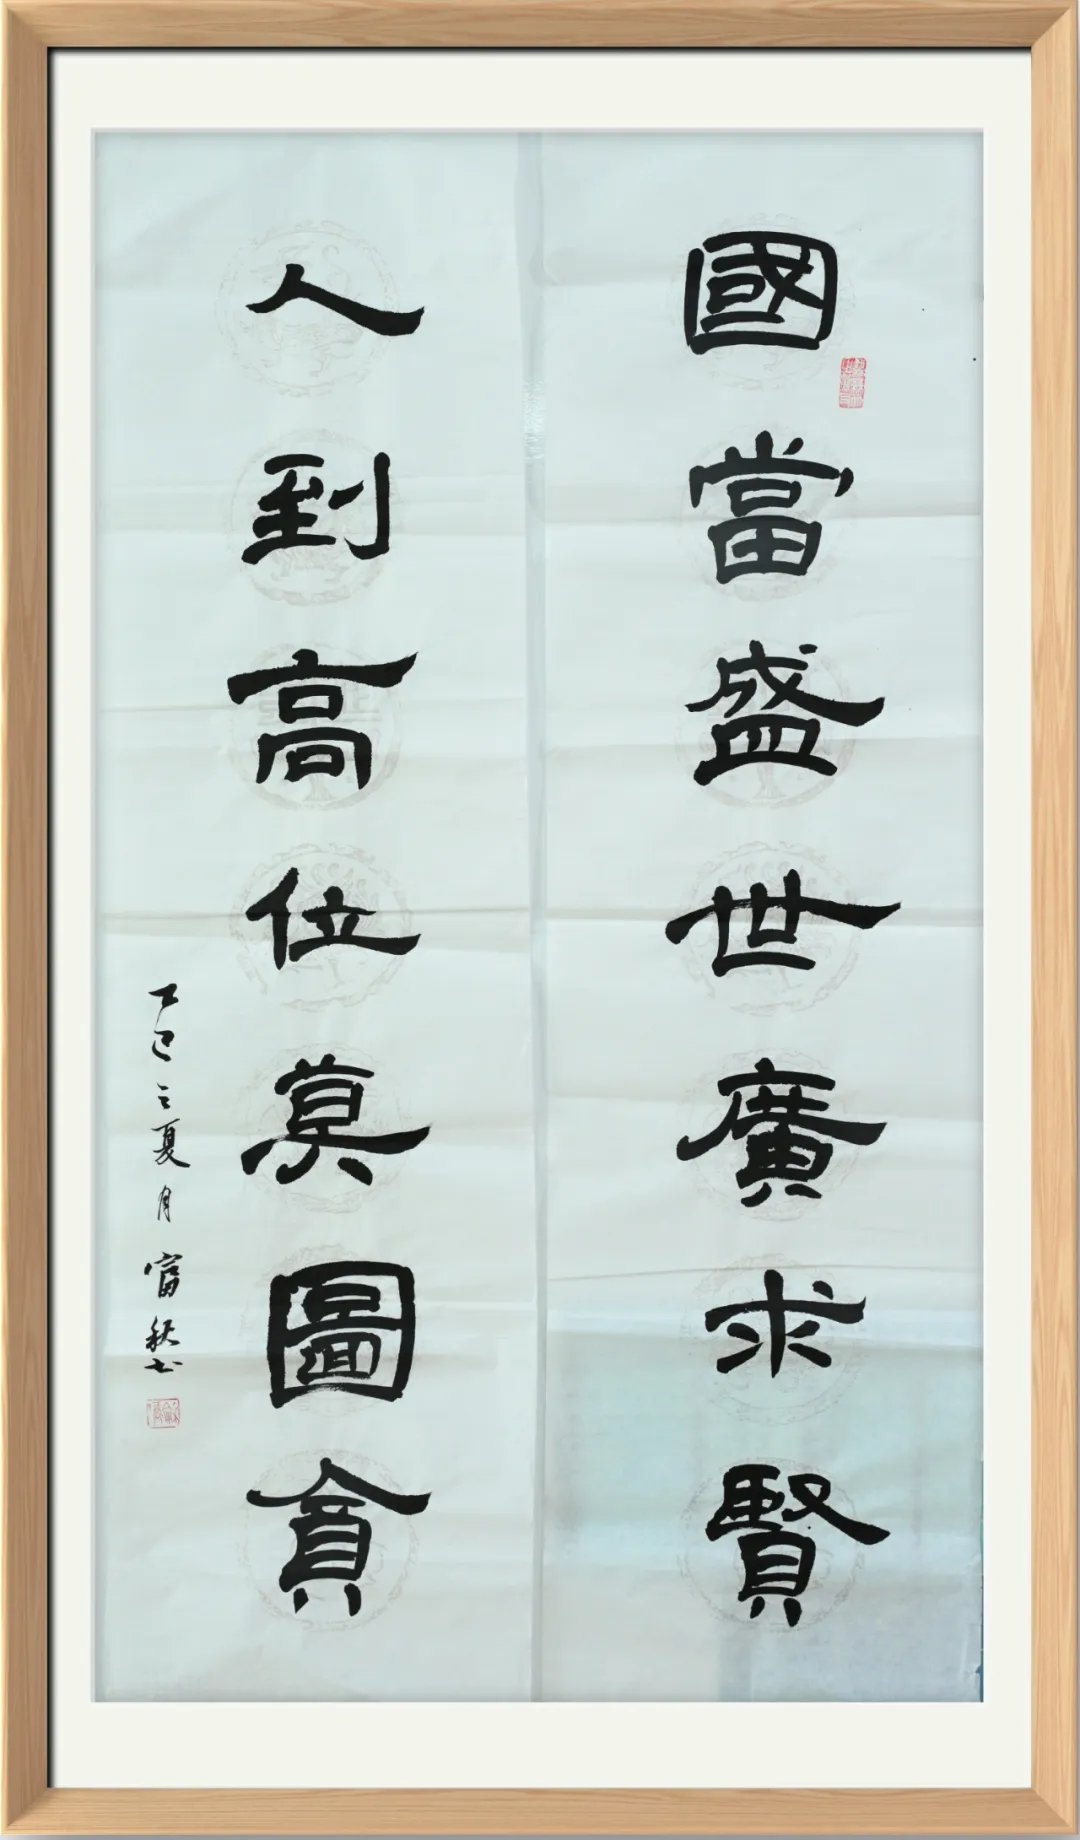 國當盛世廣求賢
人到高位莫圖貪
乙巳之夏月富秋书